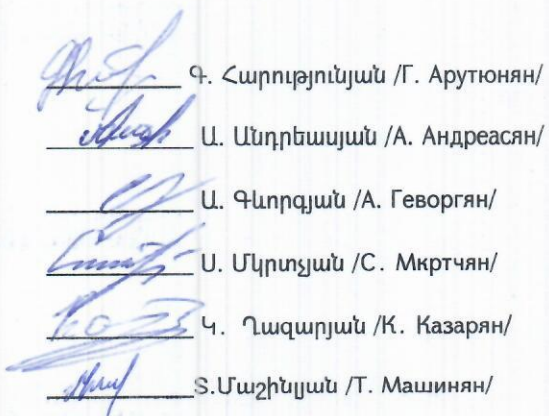 Գ. Հարությունյան /Г. Арутюнян/
Ա. Անդրեասյան /А. Андреасян/
Ա. Գևորգյան /А. Геворгян/
Ս. Մկրտչյան /С. Мкртчян/
Կ. Ղազարյան /К. Казарян/
Տ.Մաշինյան /Т. Машинян/